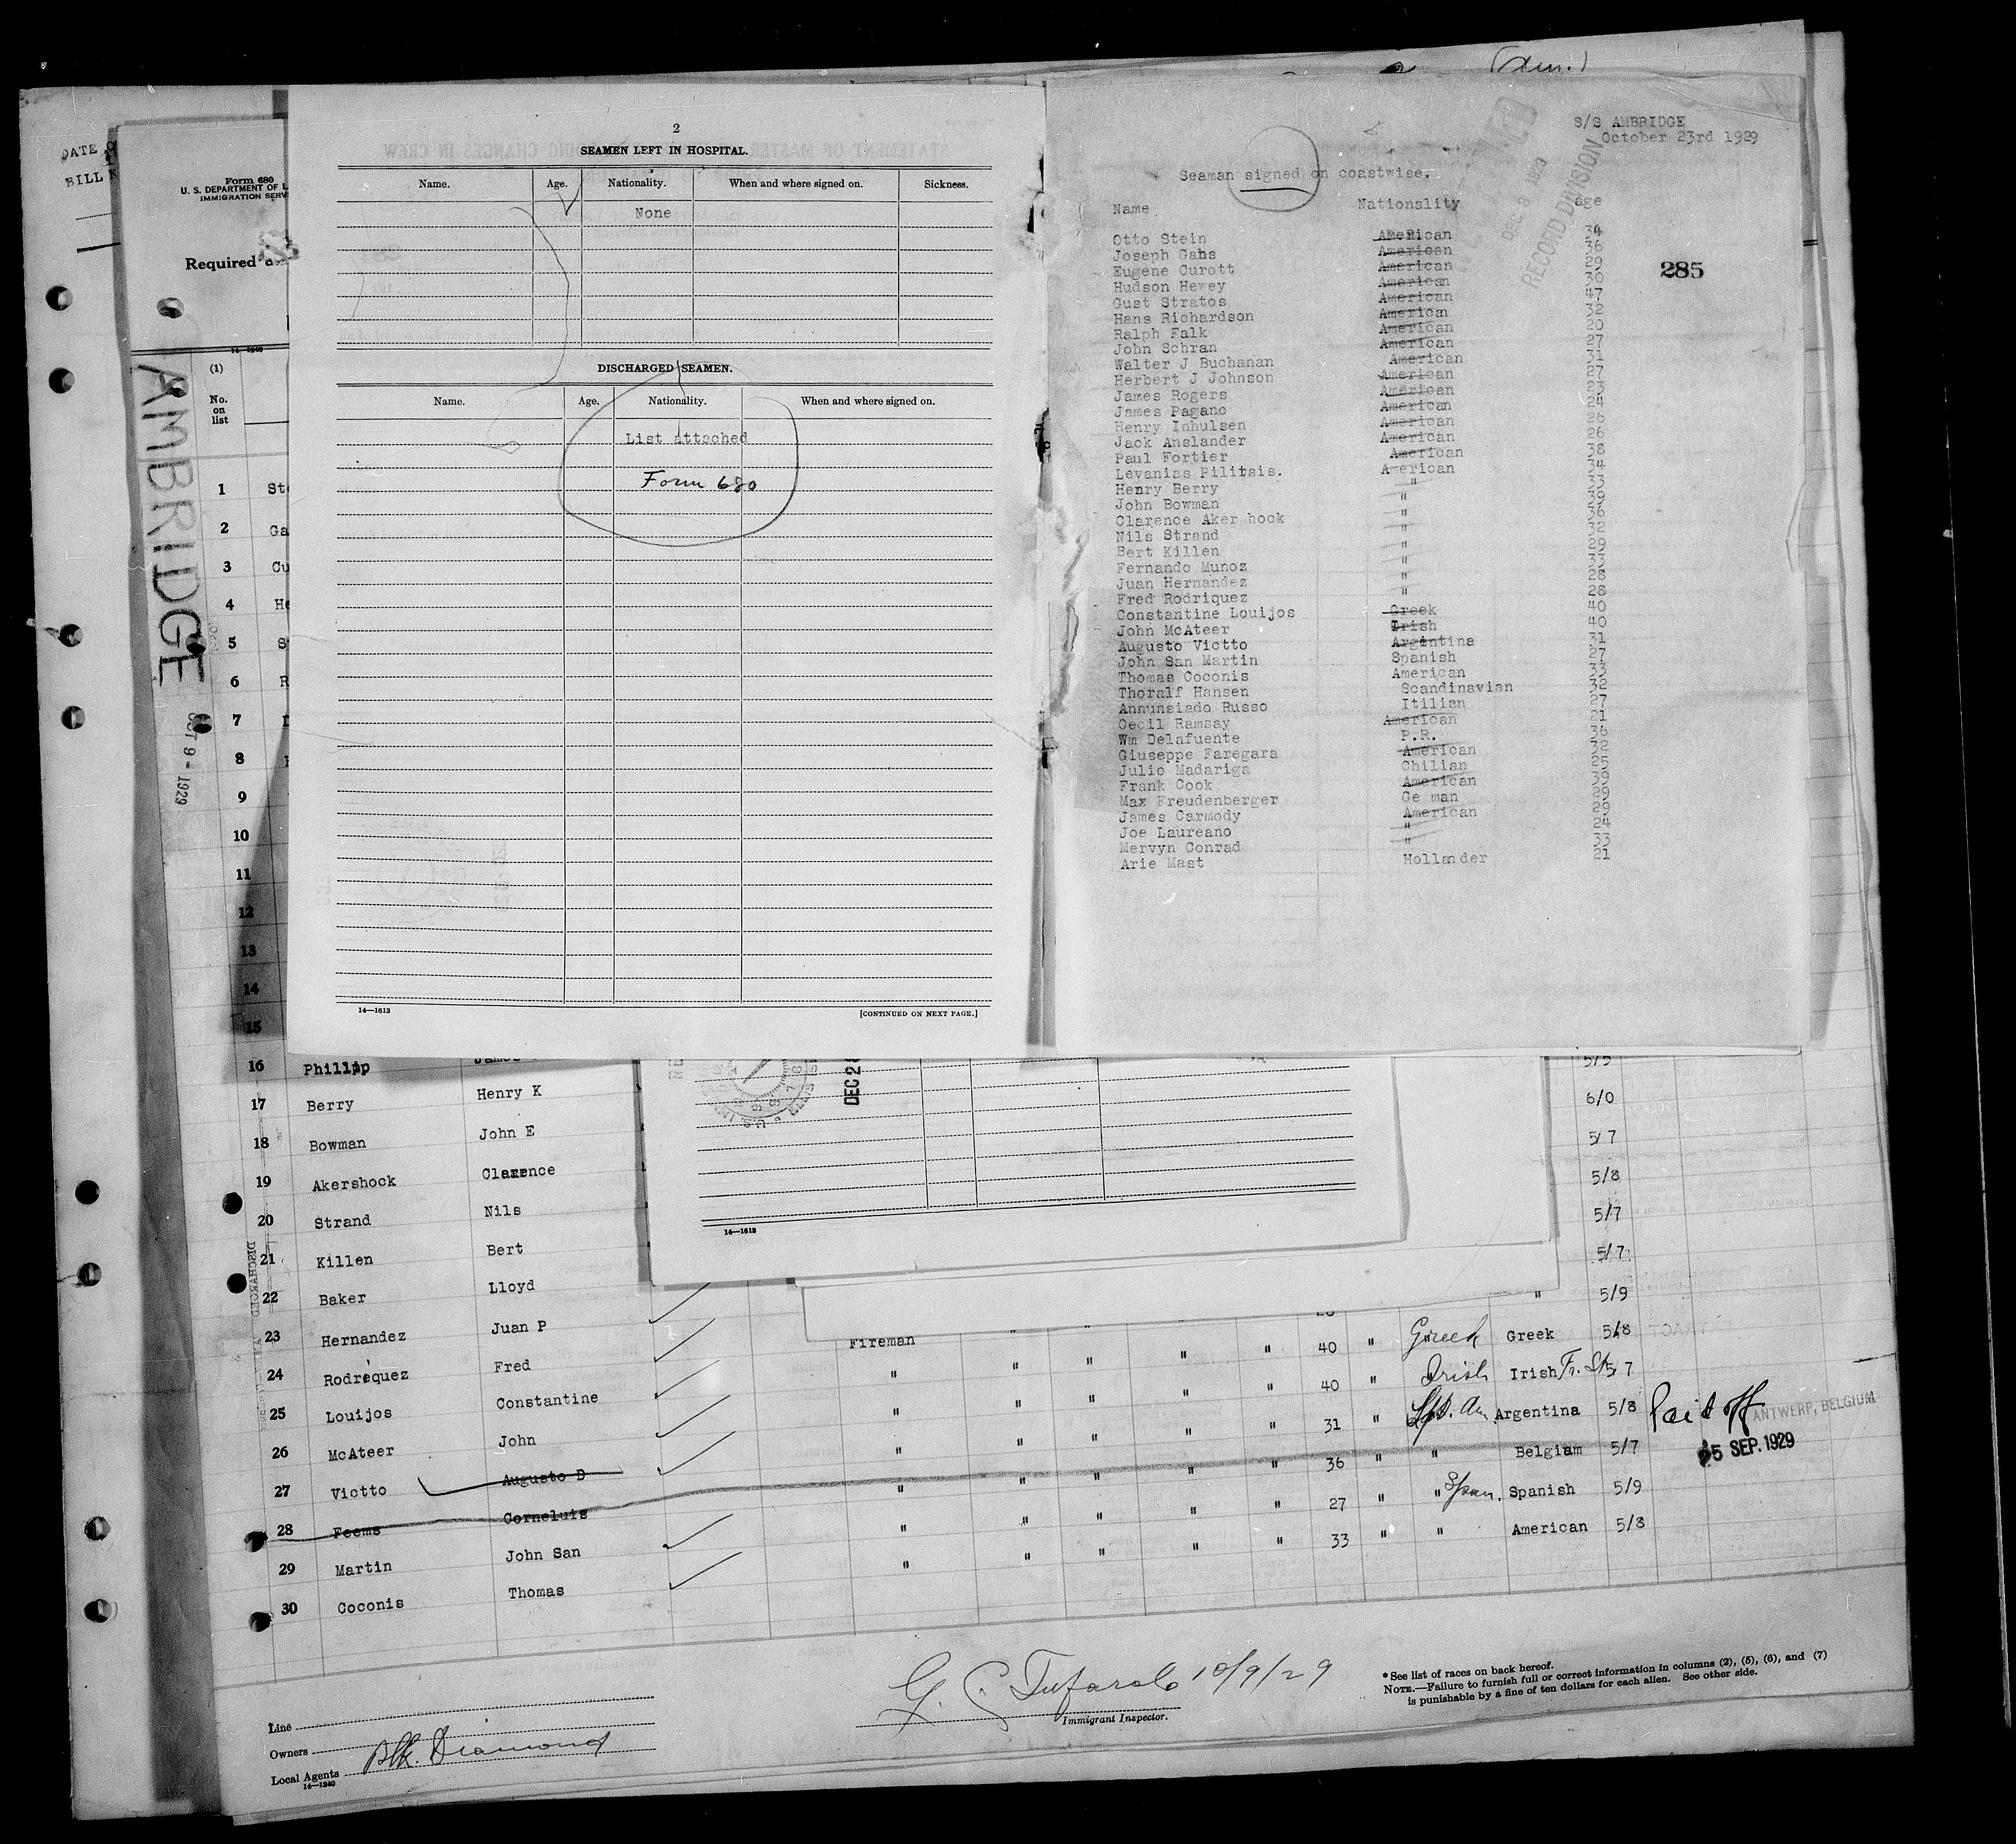 (dun.)
DATE
BILL
Form 680
U. S. DEPARTMENT OF L
IMMIGRATION SERV
Required
14—1240
AMBRIDGE
OCT 9 - 1929
(1)
No.
on
list
1 Ste
2 Ga
3 Cu
4 He
5 S
6 R
7
8
9
10
11
12
13
14
15
2
SEAMEN LEFT IN HOSPITAL.
Name. Age. Nationality. When and where signed on. Sickness.
None
DISCHARGED SEAMEN.
Name. Age. Nationality. When and where signed on.
List attached
Form 680
14—1613
[CONTINUED ON NEXT PAGE.]
S/S AMBRIDGE
October 23rd 1929
Seaman signed on coastwise.
DEC 8 1929
RECORD DIVISION
285
Name Nationality age
Otto Stein American 34
Joseph Gahs American 36
Eugene Curott American 29
Hudson Hewey American 30
Gust Stratos American 47
Hans Richardson American 32
Ralph Falk American 20
John Schran American 27
Walter J Buchanan American 31
Herbert J Johnson American 27
James Rogers American 23
James Pagano American 24
Henry Inhulsen American 26
Jack Anslander American 26
Paul Fortier American 38
Levanias Pilitsis. American 34
Henry Berry " 33
John Bowman " 39
Clarence Aker hock " 36
Nils Strand " 32
Bert Killen " 29
Fernando Munoz " 33
Juan Hernandez " 28
Fred Rodriquez " 28
Constantine Louijos Greek 40
John McAteer Irish 40
Augusto Victto Argentina 31
John San Martin Spanish 27
Thomas Coconis American 33
Thoralf Hansen Scandinavian 32
Annunsiado Russo Itilian 27
Cecil Ramsay American 21
Wm Delafuente P.R. 36
Giuseppe Faregara American 32
Julio Madariga Chilian 25
Frank Cook American 39
Max Freudenberger Ge man 29
James Carmody American 29
Joe Laureano " 24
Mervyn Conrad " 33
Arie Mast Hollander 21
DEC 2
14—1613
16 Phillip James 5/5
17 Berry Henry K 6/0
18 Bowman John E 5/7
19 Akershock Clarence 5/8
20 Strand Nils 5/7
21 Killen Bert 5/7
22 Baker Lloyd " 5/9
23 Hernandez Juan P
24 Rodrequez Fred
25 Louijos Constantine Fireman " " " " 40 " Greek Greek 5/8
26 McAteer John " " " " " 40 " Irish Irish Fr. St. 5/7
27 Victto Augusto D " " " " " 31 " Argentina 5/8
28 Feems Corneluis " " " " " 36 " " Belgiam 5/7 Paid off ANTWERP, BELGIUM
5 SEP. 1929
29 Martin John San " " " " " 27 " " Span. Spanish 5/9
30 Coconis Thomas " " " " " 33 " " American 5/8
DISCHARGED
Line
Owners
Local Agents Blk. Diamond
14—1240
G. C. Tufarolo 10/9/29
Immigrant Inspector.
* See list of races on back hereof.
NOTE.—Failure to furnish full or correct information in columns (2), (5), (6), and (7)
is punishable by a fine of ten dollars for each alien. See other side.